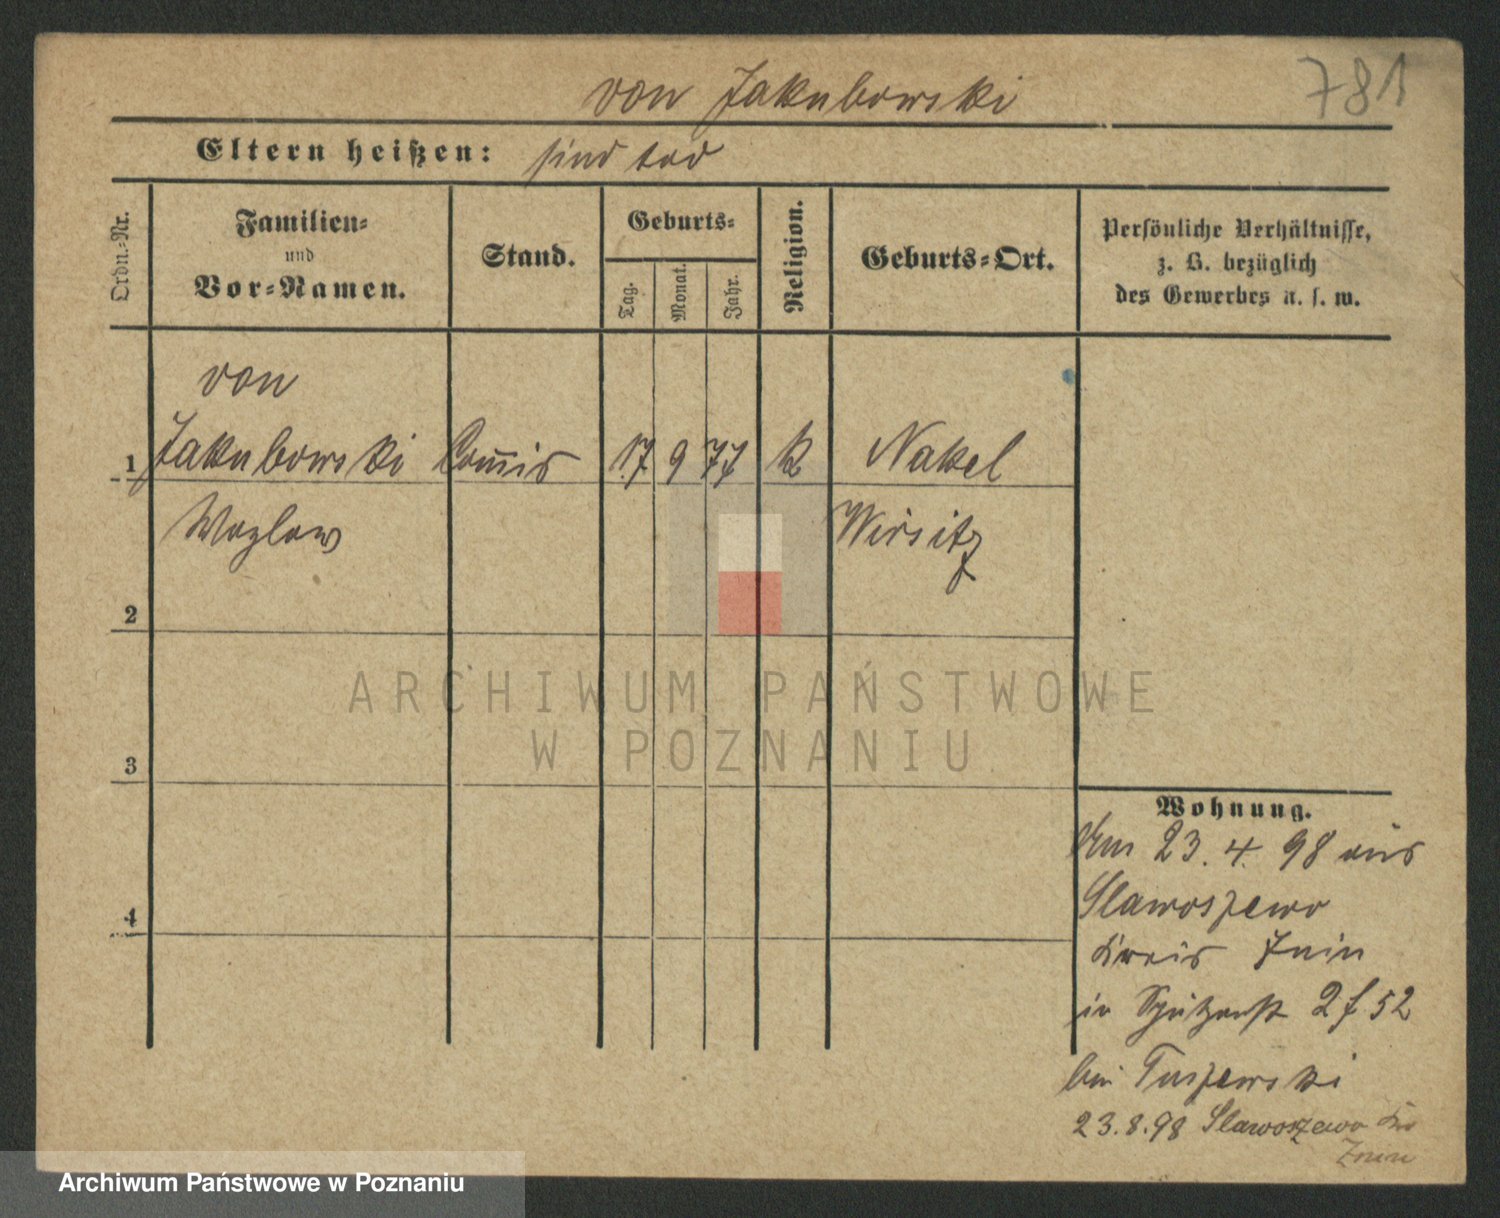 781
von Jakubowski
Eltern heißen: sind tod
Ordn.-Nr.
Familien-
und
Vor-Namen.
Stand.
Geburts-
Tag.
Monat.
Jahr.
Religion.
Geburts-Ort.
Persönliche Verhältnisse,
z. B. bezüglich
des Gewerbes u. s. w.
von
1 Jakubowski Com̅is 17 9 77 k Nakel
Wazlaw Wirsitz
2
3
4
ARCHIWUM PAŃSTWOWE
W POZNANIU
Wohnung.
Am 23.4.98 aus
Slawoszewo
Kreis Znin
in 2 f 52
bei Tuszewski
23.8.98 Slawoszewo Krs
Znin
Archiwum Państwowe w Poznaniu